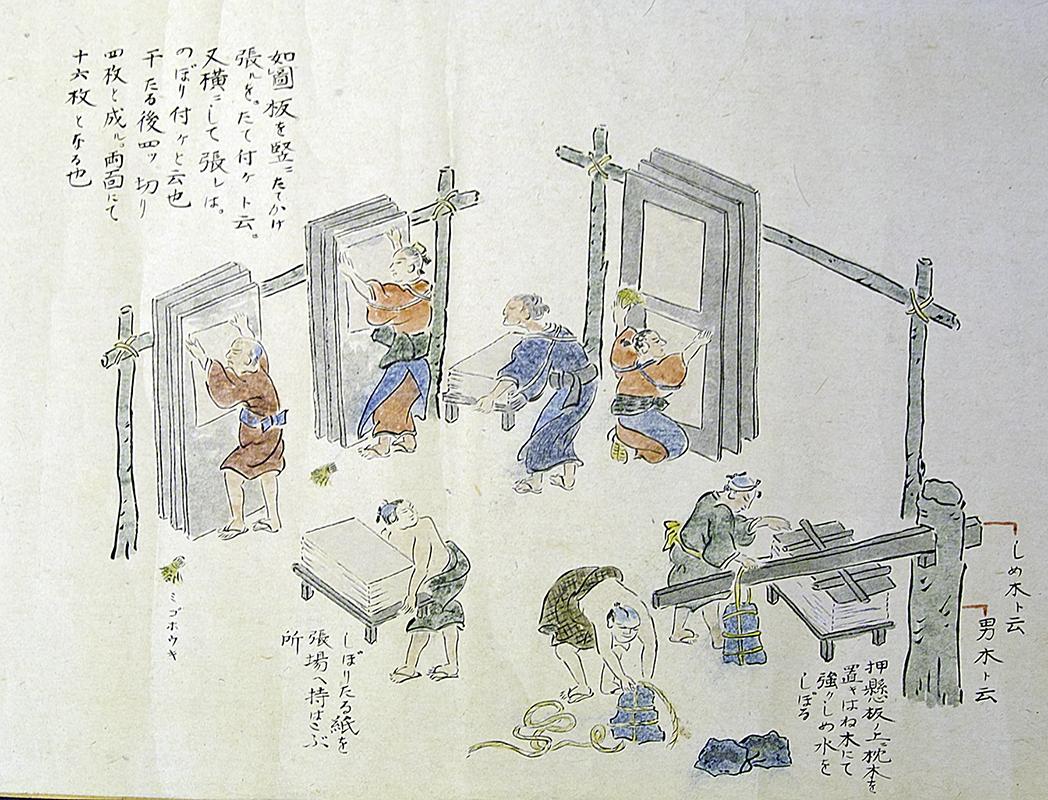 如圖板を竪ニたてかけ
張ルを。たて付ケト云。
又横ニして張しは。
のぼり付ケと云也
干たる後四ツ切り
四枚と成ル。両面にて
十六枚となる也
しめ木ト云
男木ト云
押懸板ノ上ニ枕木を
置キはね木にて
強クしめ水を
しぼる
しぼりたる紙を
張場へ持はこぶ
所
ミゴホウキ